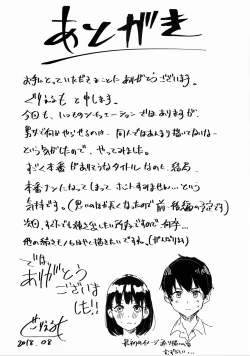 あとがき
お手にとっていただきまことにありがとうございます。
ぐりなるも と申します。
今回も、いつものシチュエーションではありますが、
男女で何かやらせるのは、同人ではあんまり描いてないな…
という気がしたので、やってみました。
すごく本番がありそうなタイトルなのも、結局
本番ナシになってしまって ホントすみません…という
気持ちです。(思いのほか長くなったので前・後編の予定です)
次回、すぐでも描き出したい所存ですので何卒…
他の続きものもはやく描きたいです。(がんばります)
では、
ありがとう
ございま
した!!
2018.08